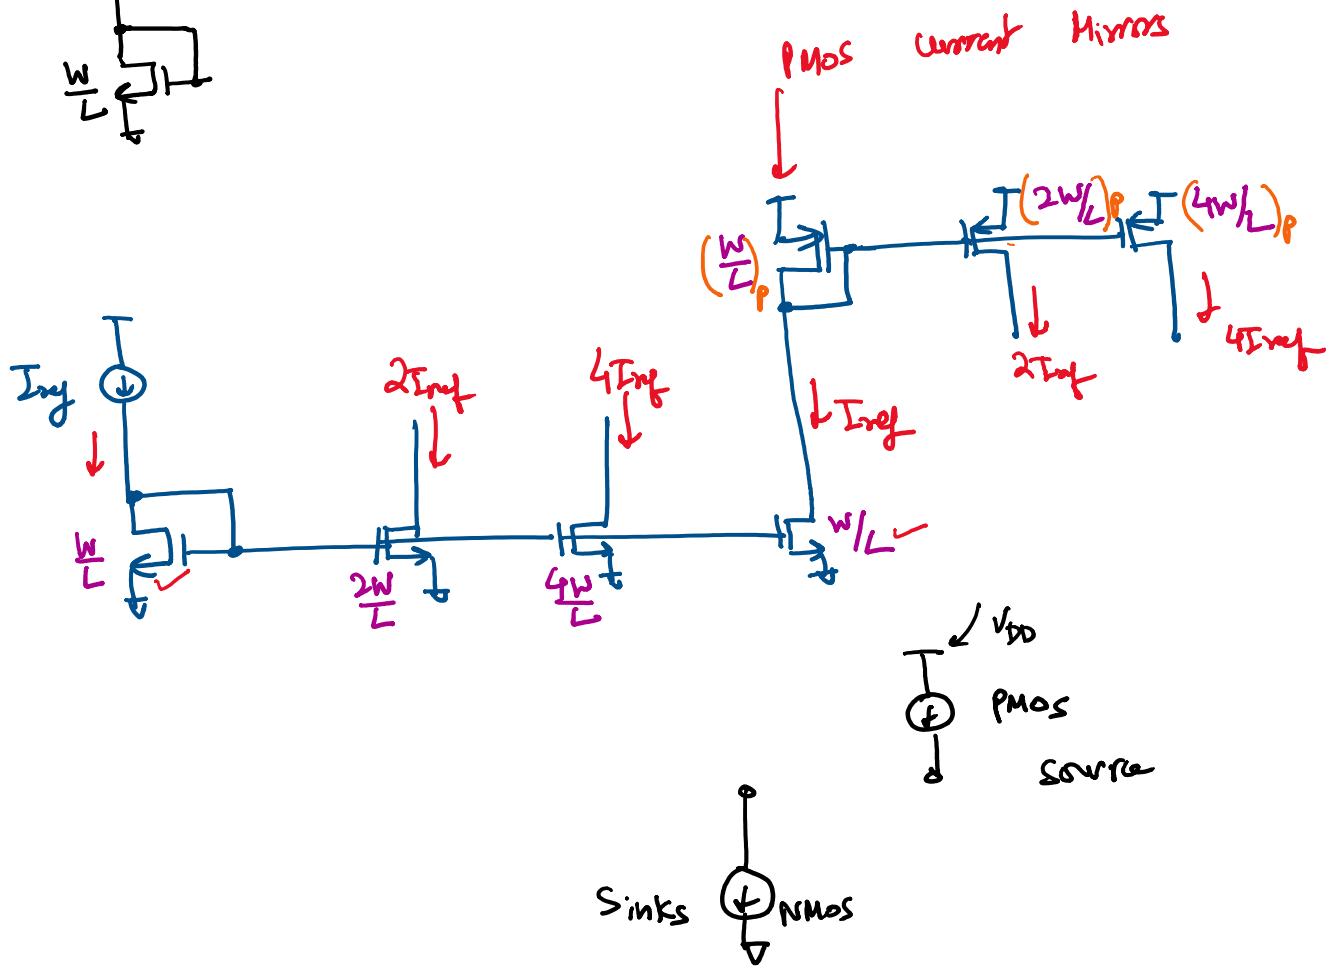 PMOS Current Mirrors
W/L
(W/L)p
(2W/L)p
(4W/L)p
2Iref
4Iref
Iref
Iref
2Iref
4Iref
W/L
2W/L
4W/L
W/L
VDD
PMOS
Source
Sinks
NMOS